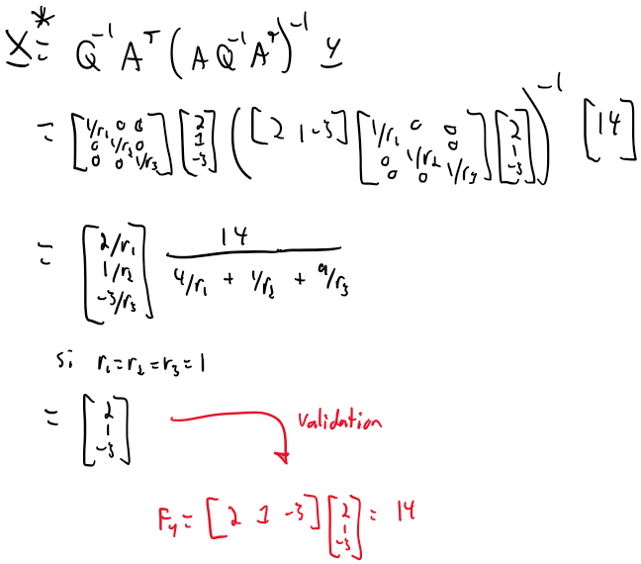 X* = Q⁻¹ Aᵀ (A Q⁻¹ Aᵀ)⁻¹ y
= [1/r₁ 0 0; 0 1/r₂ 0; 0 0 1/r₃] [2; 1; -3] ([2 1 -3] [1/r₁ 0 0; 0 1/r₂ 0; 0 0 1/r₃] [2; 1; -3])⁻¹ [14]
= [2/r₁; 1/r₂; -3/r₃] 14 / (4/r₁ + 1/r₂ + 9/r₃)
si r₁=r₂=r₃=1
= [2; 1; -3]
validation
F₄ = [2 1 -3] [2; 1; -3] = 14